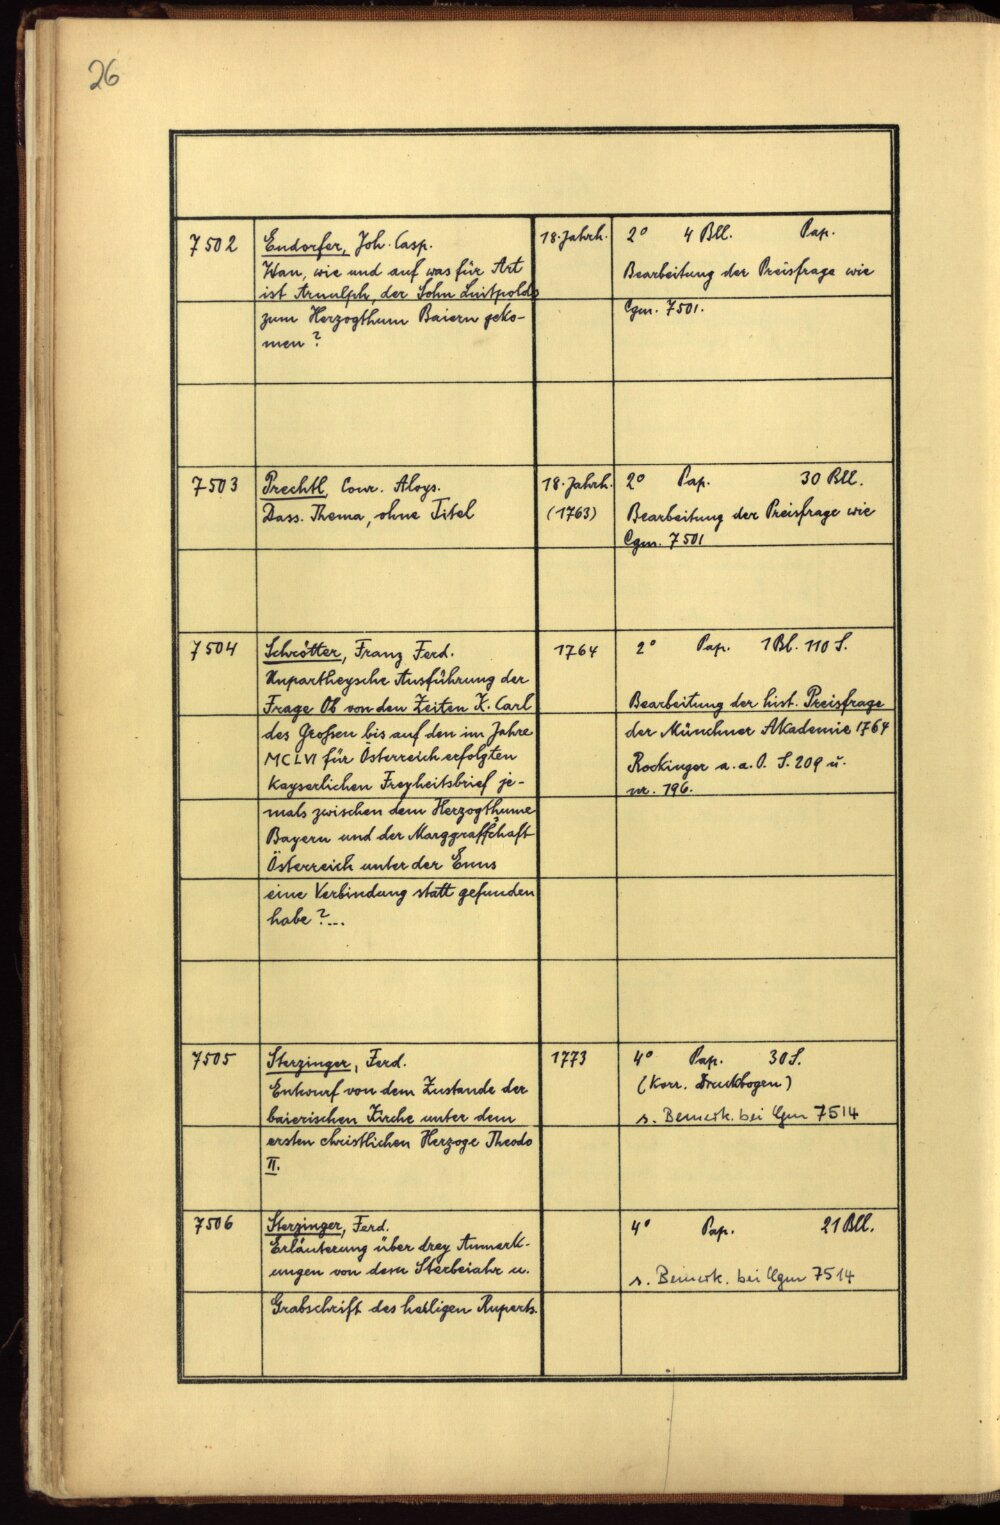 26
7502
Endorfer, Joh. Casp.
Wan, wie und auf was für Art
ist Arnulph, der Sohn Luitpolds
zum Herzogthum Baiern geko-
men?
18. Jahrh.
2° 4 Bll. Pap.
Bearbeitung der Preisfrage wie
Cgm. 7501.
7503
Prechtl, Conr. Aloys.
Dass. Thema, ohne Titel
18. Jahrh.
(1763)
2° Pap. 30 Bll.
Bearbeitung der Preisfrage wie
Cgm. 7501
7504
Schrötter, Franz Ferd.
Unpartheysche Ausführung der
Frage Ob von den Zeiten K. Carl
des Großen bis auf den im Jahre
MCLVI für Österreich erfolgten
Kayserlichen Freyheitsbrief je-
mals zwischen dem Herzogthume
Bayern und der Marggraffschaft
Österreich unter der Enns
eine Verbindung statt gefunden
habe?...
1764
2° Pap. 1 Bl. 110 S.
Bearbeitung der hist. Preisfrage
der Münchner Akademie 1764
Rockinger a. a. O. S. 209 u.
nr. 196.
7505
Sterzinger, Ferd.
Entwurf von dem Zustande der
baierischen Kirche unter dem
ersten christlichen Herzoge Theodo
II.
1773
4° Pap. 30 S.
(Korr. Druckbogen)
s. Bemerk. bei Cgm 7514
7506
Sterzinger, Ferd.
Erläuterung über drey Anmerk-
ungen von dem Sterbeiahr u.
Grabschrift des heiligen Ruperts.
4° Pap. 21 Bll.
s. Bemerk. bei Cgm 7514